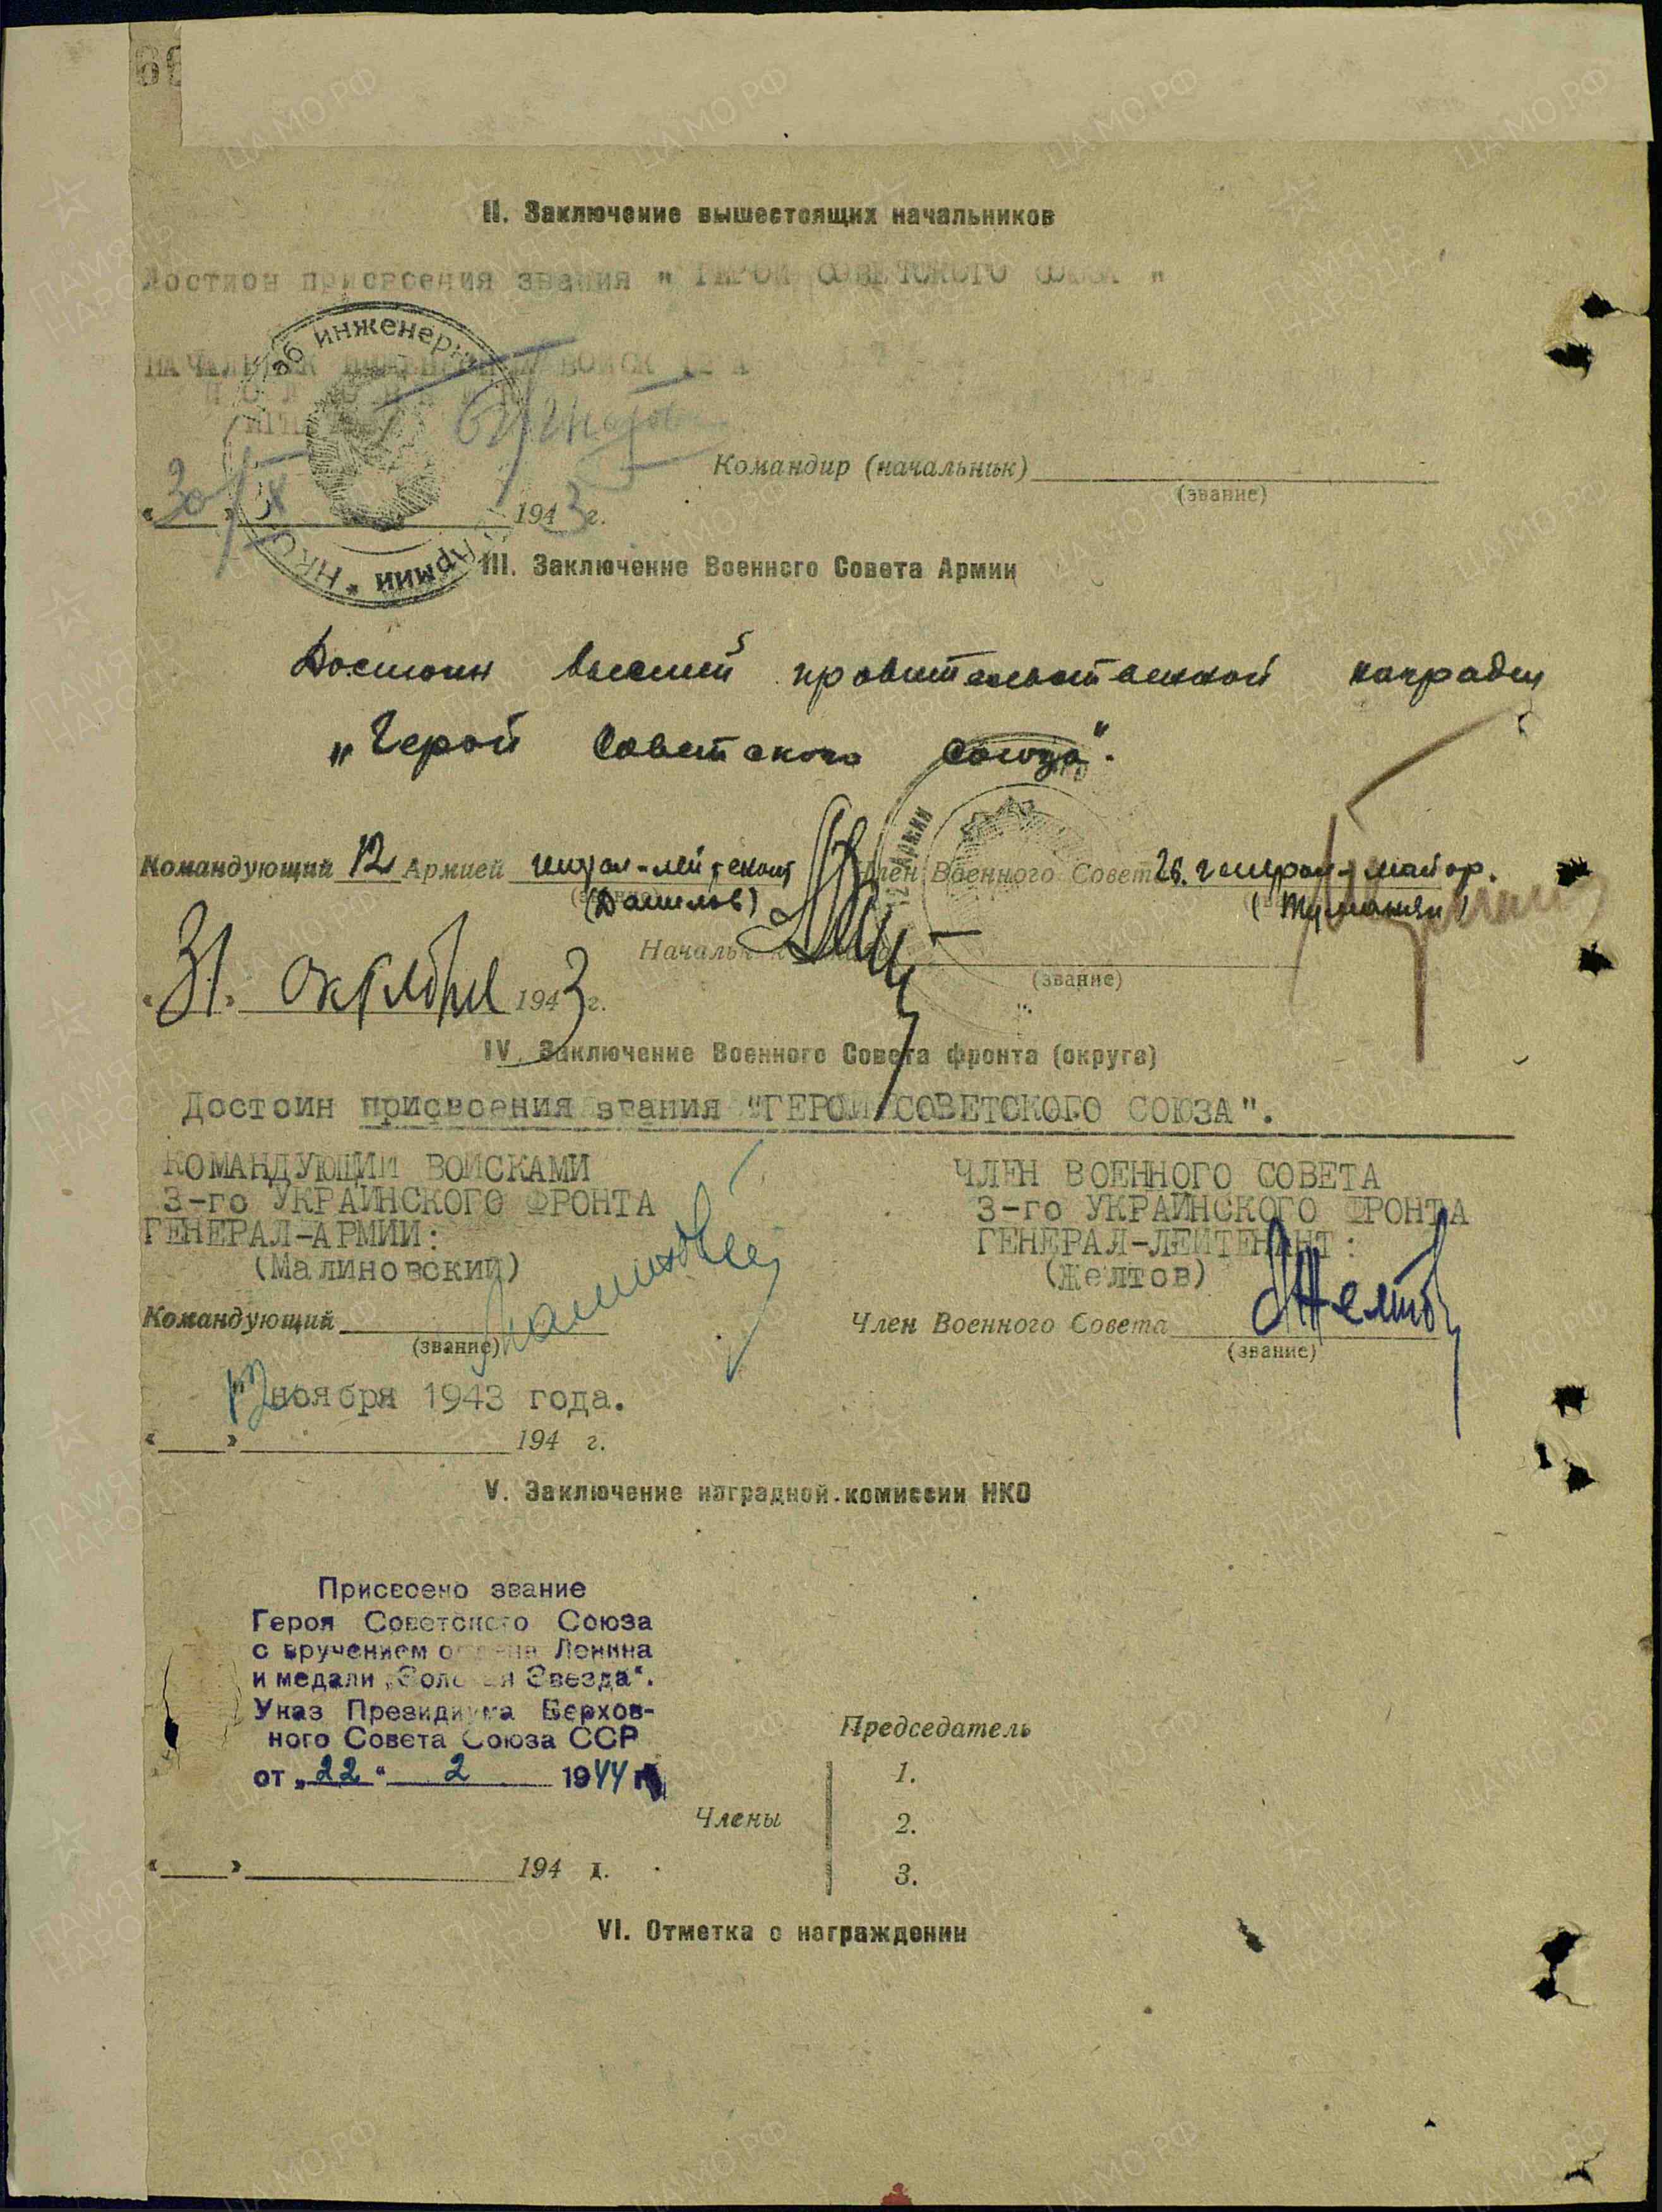 II. Заключение вышестоящих начальников
Достион присвсения звания " ГЕРОЙ СОВЕТСКОГО СОЮЗА "
НАЧАЛЬНИК ИНЖЕНЕРНЫХ ВОЙСК 12 А
Командир (начальник)
(звание)
«30» X 1943 г.
III. Заключение Военного Совета Армии
Достоин высшей правительственной награды
„Герой Советского Союза".
Командующий 12 Армией генерал-лейтенант
(Данилов)
Член Военного Совета генерал-майор.
(Туманян)
Начальник
(звание)
«31» октября 1943 г.
IV. Заключение Военного Совета фронта (округа)
Достоин присвоения звания "ГЕРОЙ СОВЕТСКОГО СОЮЗА".
КОМАНДУЮЩИЙ ВОЙСКАМИ
3-го УКРАИНСКОГО ФРОНТА
ГЕНЕРАЛ-АРМИИ:
(Малиновский)
ЧЛЕН ВОЕННОГО СОВЕТА
3-го УКРАИНСКОГО ФРОНТА
ГЕНЕРАЛ-ЛЕЙТЕНАНТ:
(Желтов)
Командующий
(звание)
Член Военного Совета
(звание)
ноября 1943 года.
« » 194 г.
V. Заключение наградной комиссии НКО
Присвоено звание
Героя Советского Союза
с вручением ордена Ленина
и медали „Золотая Звезда".
Указ Президиума Верхов-
ного Совета Союза ССР
от „22" 2 1944 г.
Председатель
Члены
1.
2.
3.
« » 194 г.
VI. Отметка о награждении